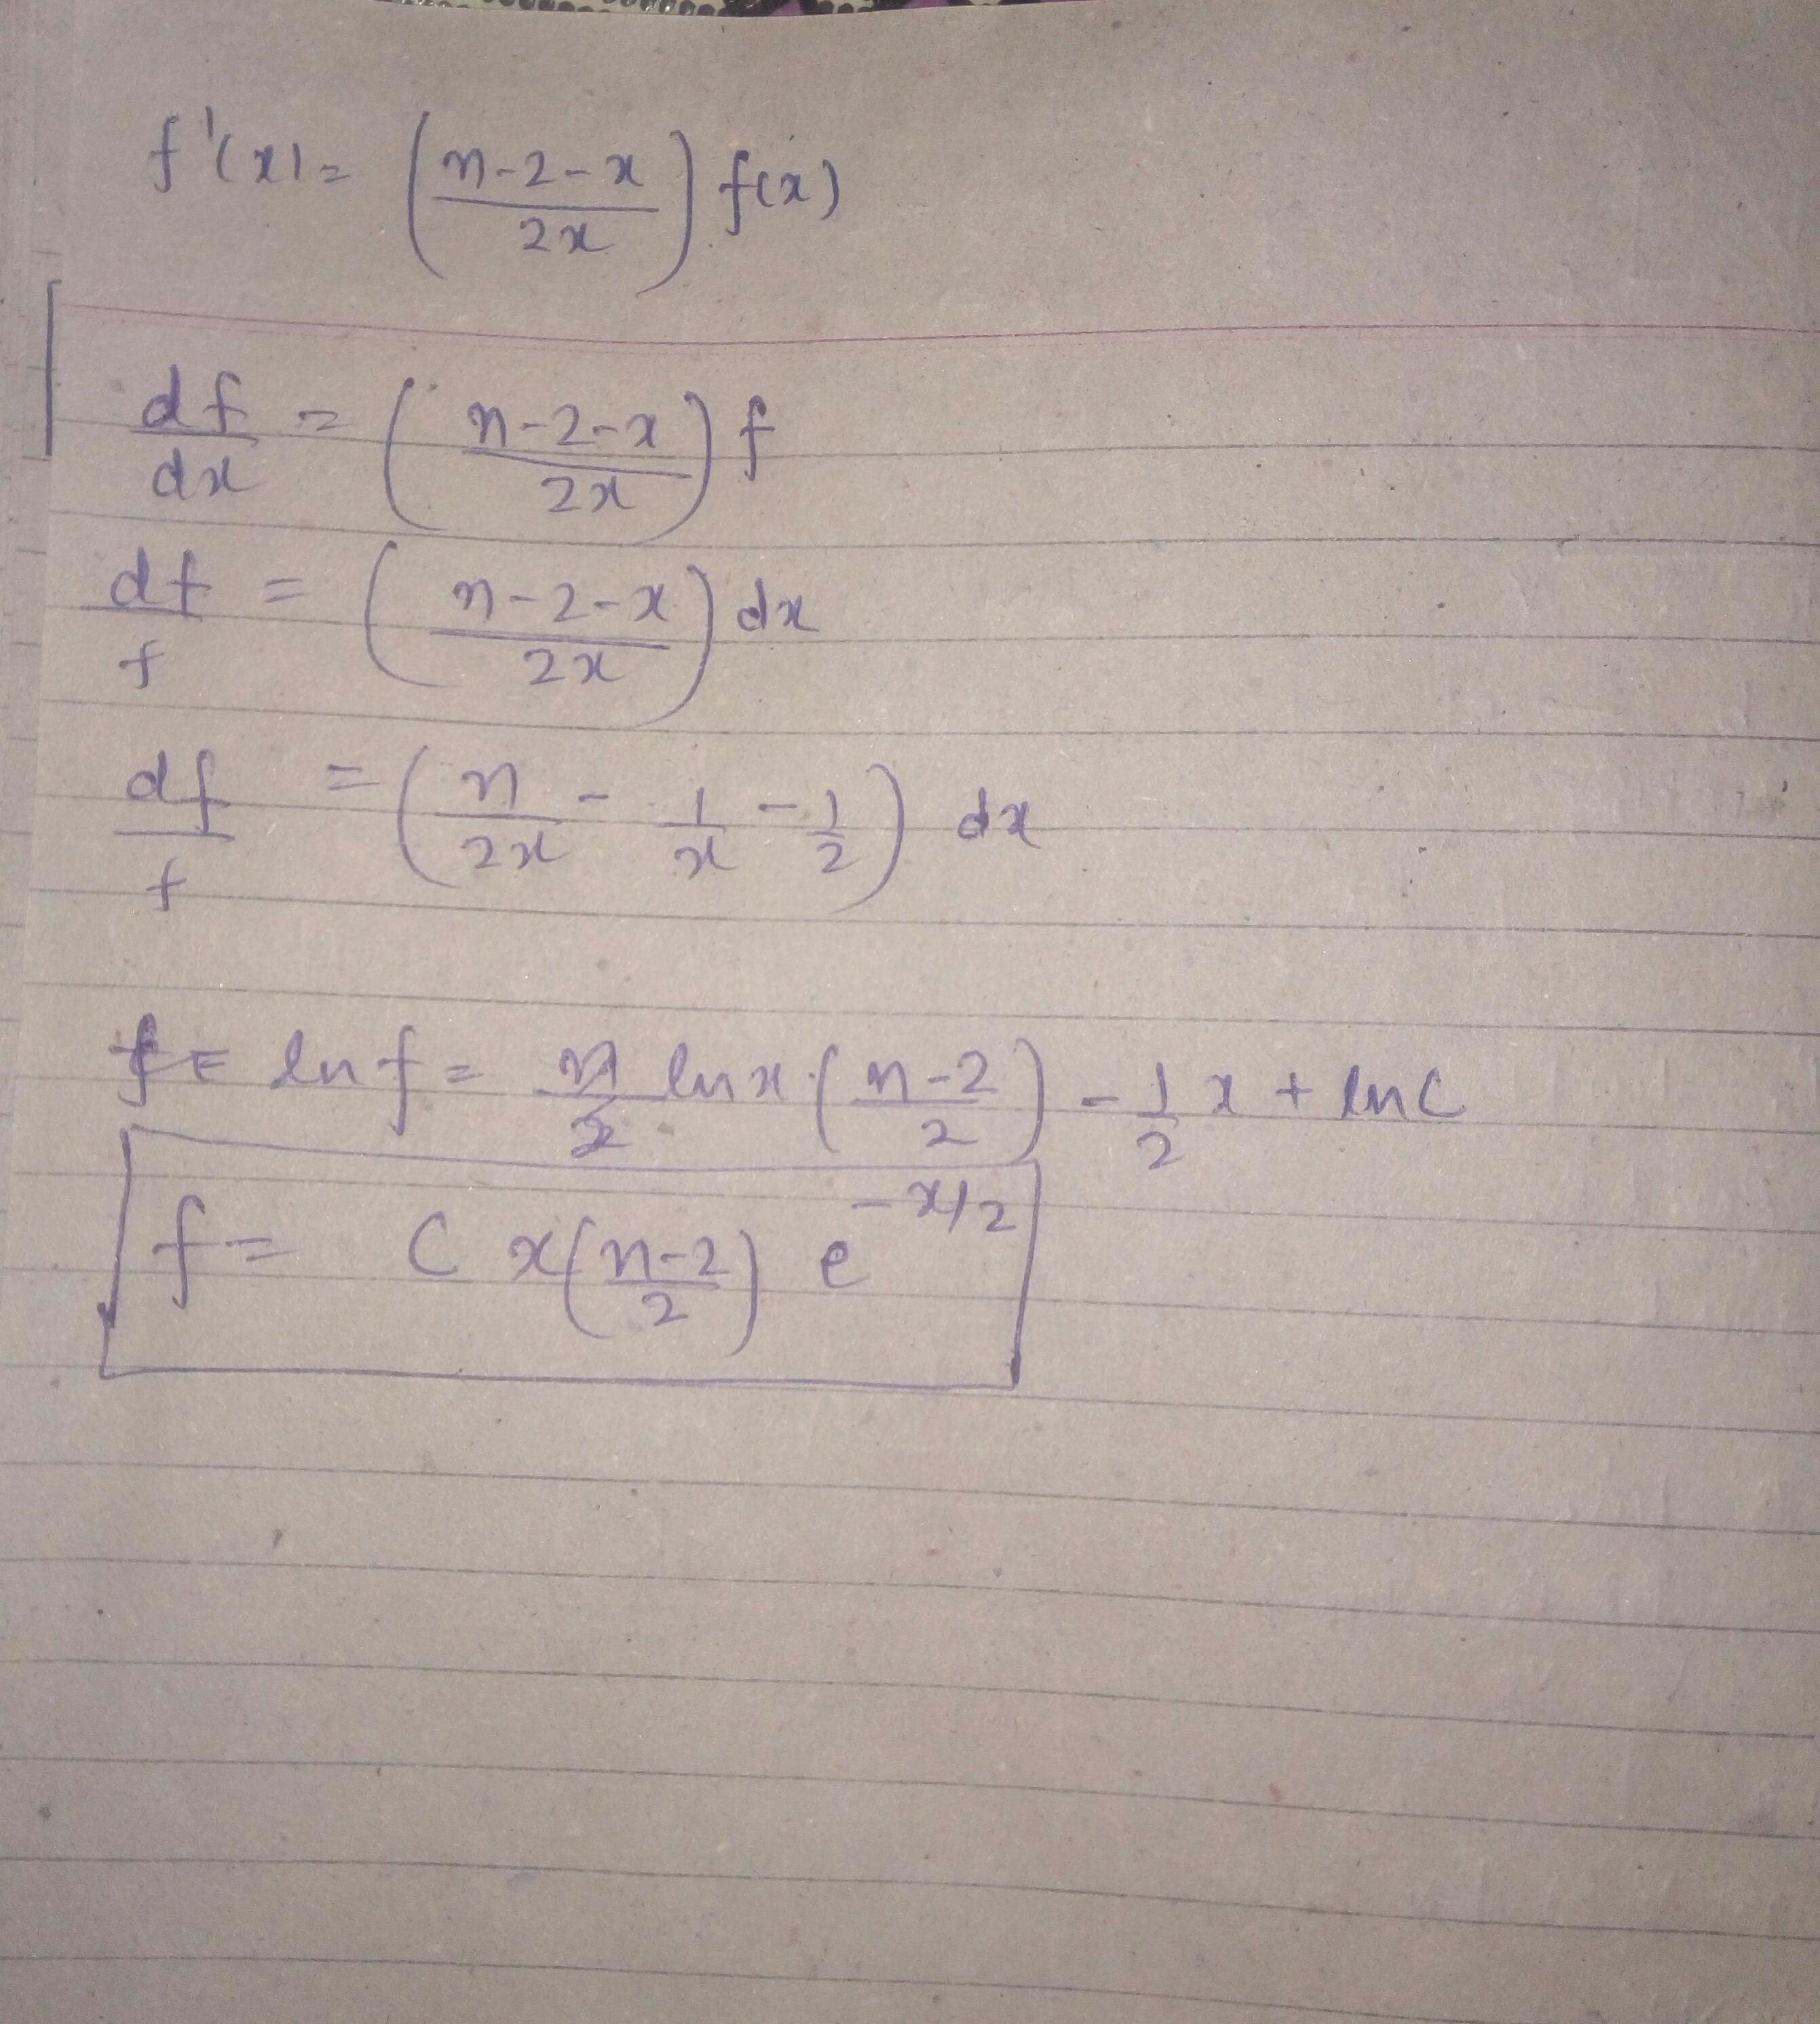 f'(x) = ((n-2-x)/(2x)) f(x)
df/dx = ((n-2-x)/(2x)) f
df/f = ((n-2-x)/(2x)) dx
df/f = (n/(2x) - 1/x - 1/2) dx
ln f = ln x ((n-2)/2) - 1/2 x + ln C
f = C x((n-2)/2) e^(-x/2)